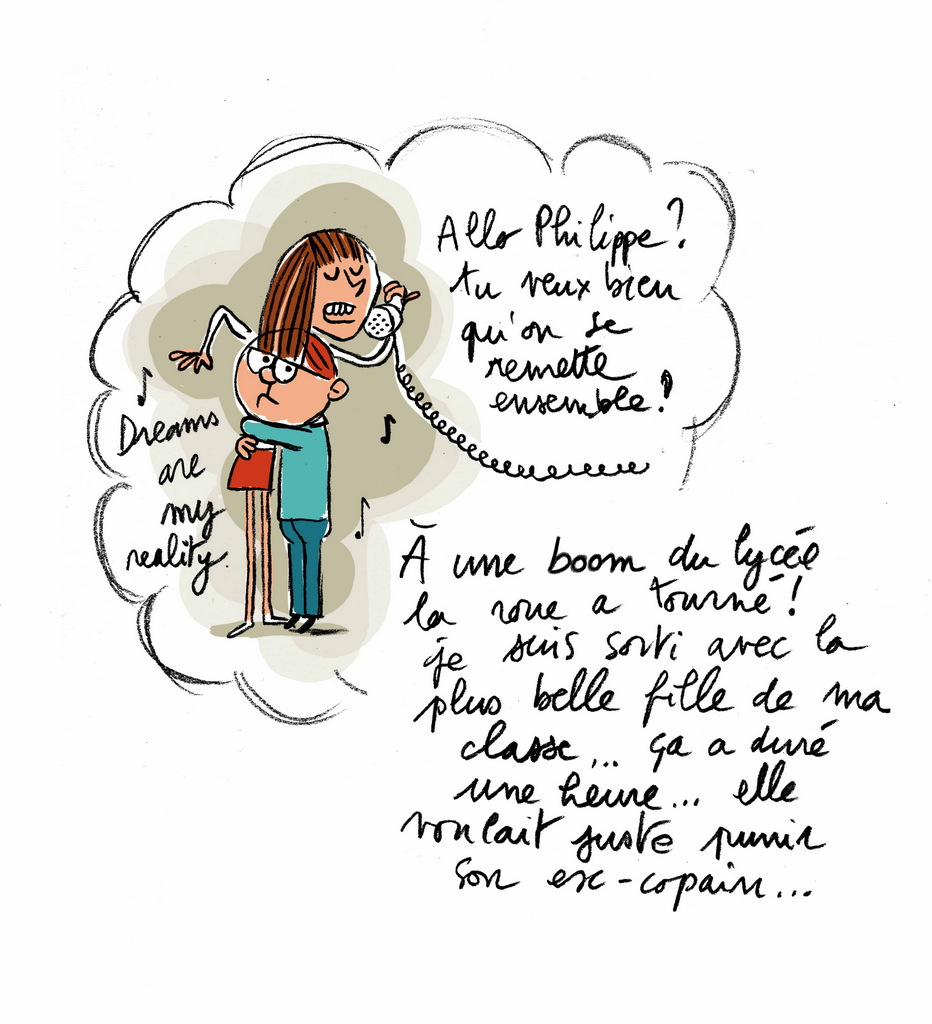 Allo Philippe?
tu veux bien
qu'on se
remette
ensemble?
Dreams
are
my
reality.
À une boom du lycée
la roue a tourné!
je suis sorti avec la
plus belle fille de ma
classe... ça a duré
une heure... elle
voulait juste punir
son ex-copain...